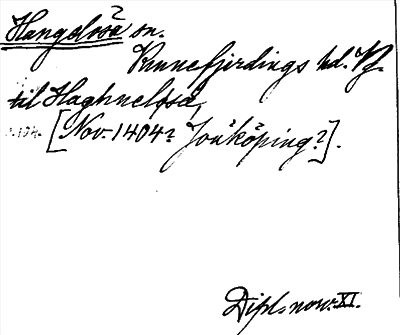 Hangelösa? sn.
Kinnefjerdings hd. Vg.
til Haghneløsa,
[Nov. 1404? Jonköping?].
Dipl. norv. XI.